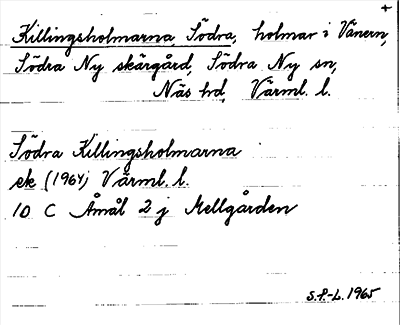 +
Killingsholmarna, Södra, holmar i Vänern,
Södra Ny skärgård, Södra Ny sn,
Näs hd, Värml. l.
Södra Killingsholmarna
ek (1964) Värml. l.
10 C Åmål 2 j Mellgården
S.P.-L. 1965